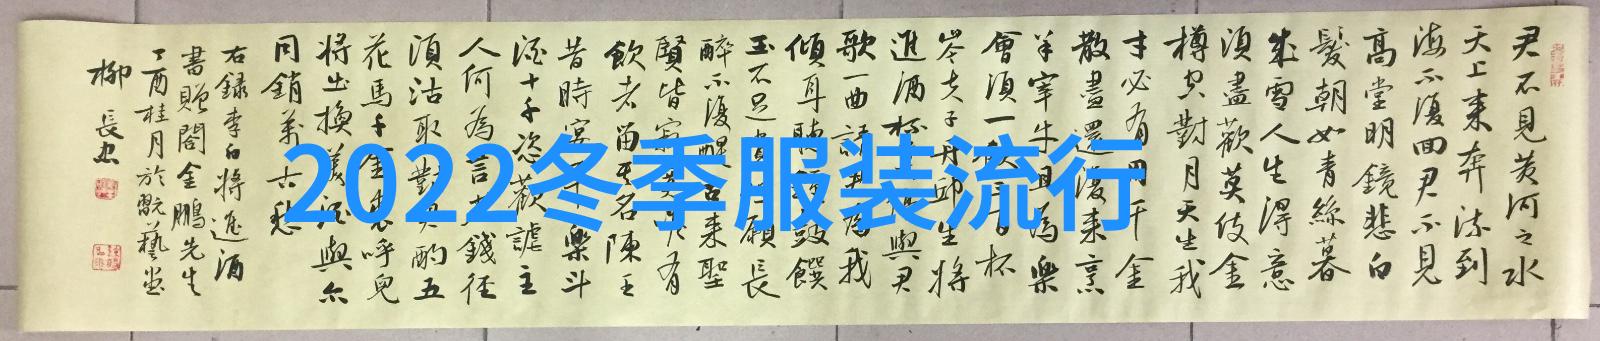 君不見黃河之水
天上來奔流到
海不復回君不見
高堂明鏡悲白
髮朝如青絲暮
成雪人生得意
須盡歡莫使金
樽空對月天生我
才必有用千金
散盡還復來烹
羊宰牛且為樂
會須一飲三百杯
岑夫子丹邱生將
進酒杯莫停與君
歌一曲請君為我
傾耳聽鐘鼓饌
玉不足貴但願長
醉不復醒古來聖
賢皆寂寞惟有
飲者留其名陳王
昔時宴平樂斗
酒十千恣歡謔主
人何為言少錢徑
須沽取對君酌五
花馬千金裘呼兒
將出換美酒與尔
同銷萬古愁
右錄李白將進酒
書贈閣金鵬先生
丁酉桂月於翫藝堂
柳長忠
2022冬季服装流行